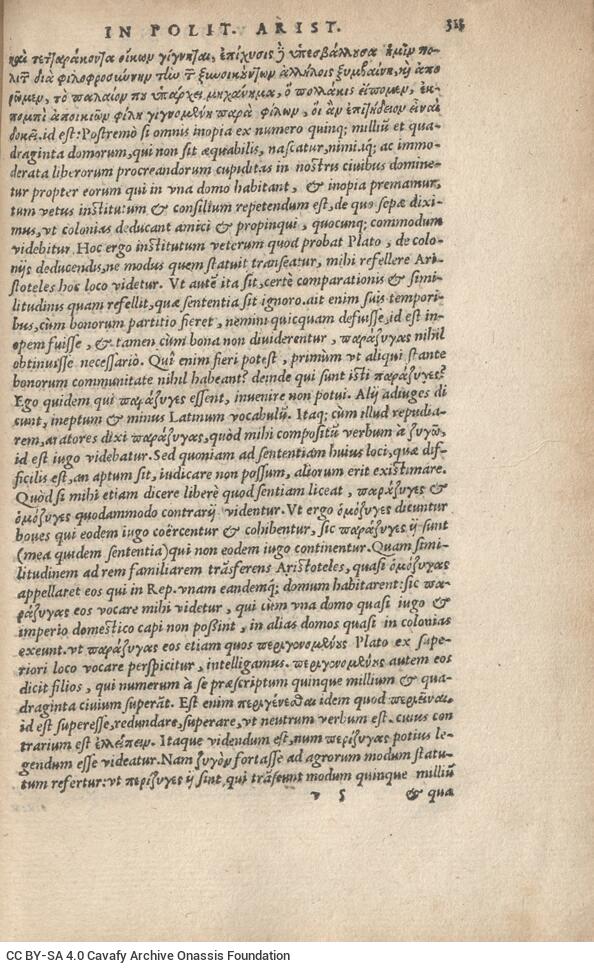 IN POLIT. ARIST.
καὶ τετταράκοντα οἴκων γίγνηται, ἐπίχυσις ὑπερβάλλουσα ἡμῖν πο-
λιτ διὰ φιλοφροσύνην τῶν ξυνοικούντων ἀλλήλοις ξυμβαίνῃ, κὴ ἀπο
ρῶμεν, τὸ παλαιόν που ὑπάρχει μηχάνημα, ὃ πολλάκις εἴπομεν, ἐκ-
πομπὴ ἀποικιῶν φίλη γιγνομένη παρὰ φίλων, οἳ ἂν ἐπιτήδειον εἶναι
δοκεῖ. id est: Postremò si omnis inopia ex numero quinq; milliũ et qua-
draginta domorum, qui non sit æquabilis, nascatur, nimi.ũq; ac immo-
derata liberorum procreandorum cupiditas in nostris ciuibus domine-
tur propter eorum qui in vna domo habitant, & inopia premamur,
tum vetus institutum & consilium repetendum est, de quo sepæ dixi-
mus, vt colonias deducant amici & propinqui, quocunq; commodum
videbitur. Hoc ergo institutum veterum quod probat Plato, de colo-
nijs deducendis, ne modus quem statuit transeatur, mihi refellere Ari-
stoteles hoc loco videtur. Vt autẽ ita sit, certè comparationis & simi-
litudinis quam refellit, quæ sententia sit ignoro. ait enim suis tempori-
bus, cùm bonorum partitio fieret, nemini quicquam defuisse, id est in-
opem fuisse, & tamen cùm bona non diuiderentur, παράζυγας nihil
obtinuisse necessariò. Quî enim fieri potest, primùm vt aliqui stante
bonorum communitate nihil habeant? deinde qui sunt isti παράζυγες?
Ego quidem qui παράζυγες essent, inuenire non potui. Alij adiuges di
cunt, ineptum & minus Latinum vocabulũ. Itaq; cùm illud repudia-
rem, aratores dixi παράζυγας, quòd mihi compositũ verbum à ζυγῶ,
id est iugo videbatur. Sed quoniam ad sententiam huius loci, quæ dif-
ficilis est, an aptum sit, iudicare non possum, aliorum erit existimare.
Quòd si mihi etiam dicere liberè quod sentiam liceat, παράζυγες &
ὁμόζυγες quodammodo contrarij videntur. Vt ergo ὁμόζυγες dicuntur
boues qui eodem iugo coërcentur & cohibentur, sic παράζυγες ij sunt
(mea quidem sententia) qui non eodem iugo continentur. Quam simi-
litudinem ad rem familiarem trãsferens Aristoteles, quasi ὁμόζυγας
appellaret eos qui in Rep. vnam eandemq; domum habitarent: sic πα-
ράζυγας eos vocare mihi videtur, qui cùm vna domo quasi iugo &
imperio domestico capi non poßint, in alias domos quasi in colonias
exeunt. vt παράζυγας eos etiam quos περιγενομένους Plato ex supe-
riori loco vocare perspicitur, intelligamus. περιγενομένους autem eos
dicit filios, qui numerum à se præscriptum quinque millium & qua-
draginta ciuium superãt. Est enim περιγενέσθαι idem quod περιεῖναι.
id est superesse, redundare, superare, vt neutrum verbum est. cuius con
trarium est ἐλλείπειν. Itaque videndum est, num περίζυγας potius le-
gendum esse videatur. Nam ζυγὸν fortasse ad agrorum modum statu-
tum refertur: vt περίζυγες ij sint, qui trãseunt modum quinque milliũ
v 5 & qua
CC BY-SA 4.0 Cavafy Archive Onassis Foundation